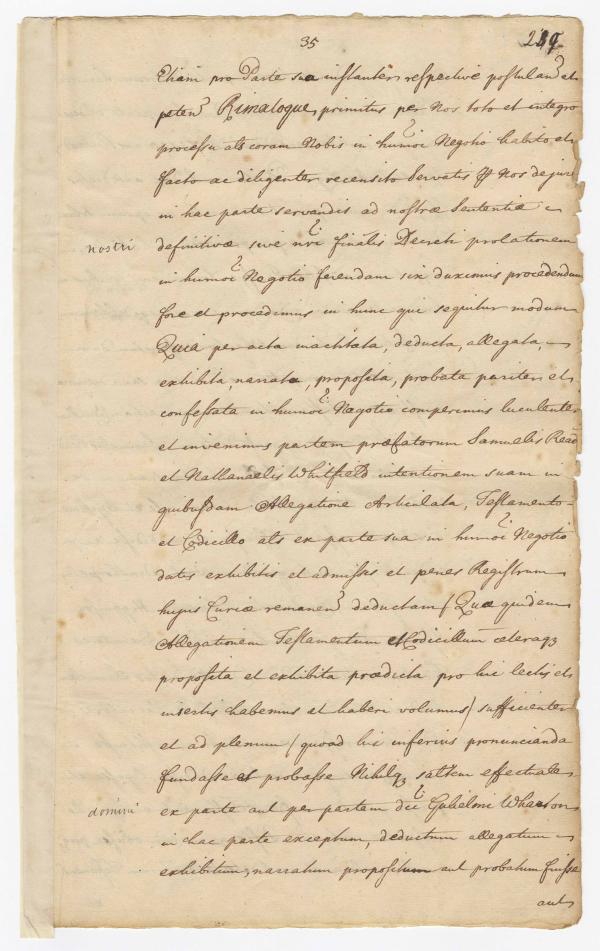 35
249
Etiam pro Parte sua instanter respective postulan? et
peten? Rimatoque, primitus per Nos toto et integro
processu als coram Nobis in humoi Negotio habito et
facto ac diligenter recensito Servatis Nos de jure
in hac parte servandis ad nostræ Sententiæ
nostri definitivæ sive nri finalis Decreti prolationem
in humoi Negotio ferendam sic duximus procedendum
fore et procedimus in hunc qui sequitur modum
Quia per acta inactitata, deducta, allegata,
exhibita, narrata, proposita, probata pariter et
confessata in humoi Negotio comperimus luculenter
et invenimus partem præfatorum Samuelis Read
et Nathanaelis Whitfield intentionem suam in
quibusdam Allegatione Articulata, Testamento
et Codicillo als ex parte sua in humoi Negotio
datis exhibitis et admissis et penes Registrum
hujus Curiæ remanen? deductam ( Quæ quidem
Allegationem Testamentum et Codicillum cæteraq3
proposita et exhibita prædicta pro hic lectis et
insertis habemus et haberi volumus ) sufficienter
et ad plenum ( quoad hic inferius pronuncianda
fundasse et probasse Nihilq3 saltem effectuale
domini ex parte aut per partem dci Gulielmi Wharton
in hac parte exceptum, deductum allegatum
exhibitum, narratum propositum aut probatum fuisse
aut